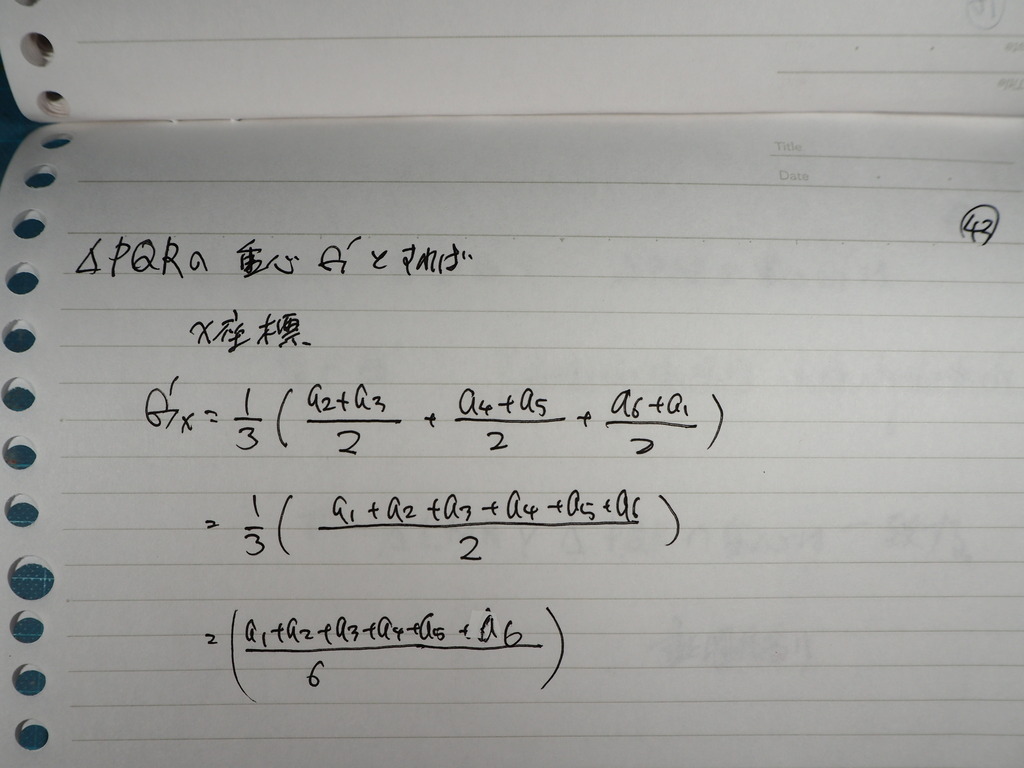 Title
Date
㊷
△PQRの 重心 G′とすれば
x座標
G′x = 1/3 ( (a2+a3)/2 + (a4+a5)/2 + (a6+a1)/2 )
= 1/3 ( (a1+a2+a3+a4+a5+a6)/2 )
= ( (a1+a2+a3+a4+a5+a6)/6 )